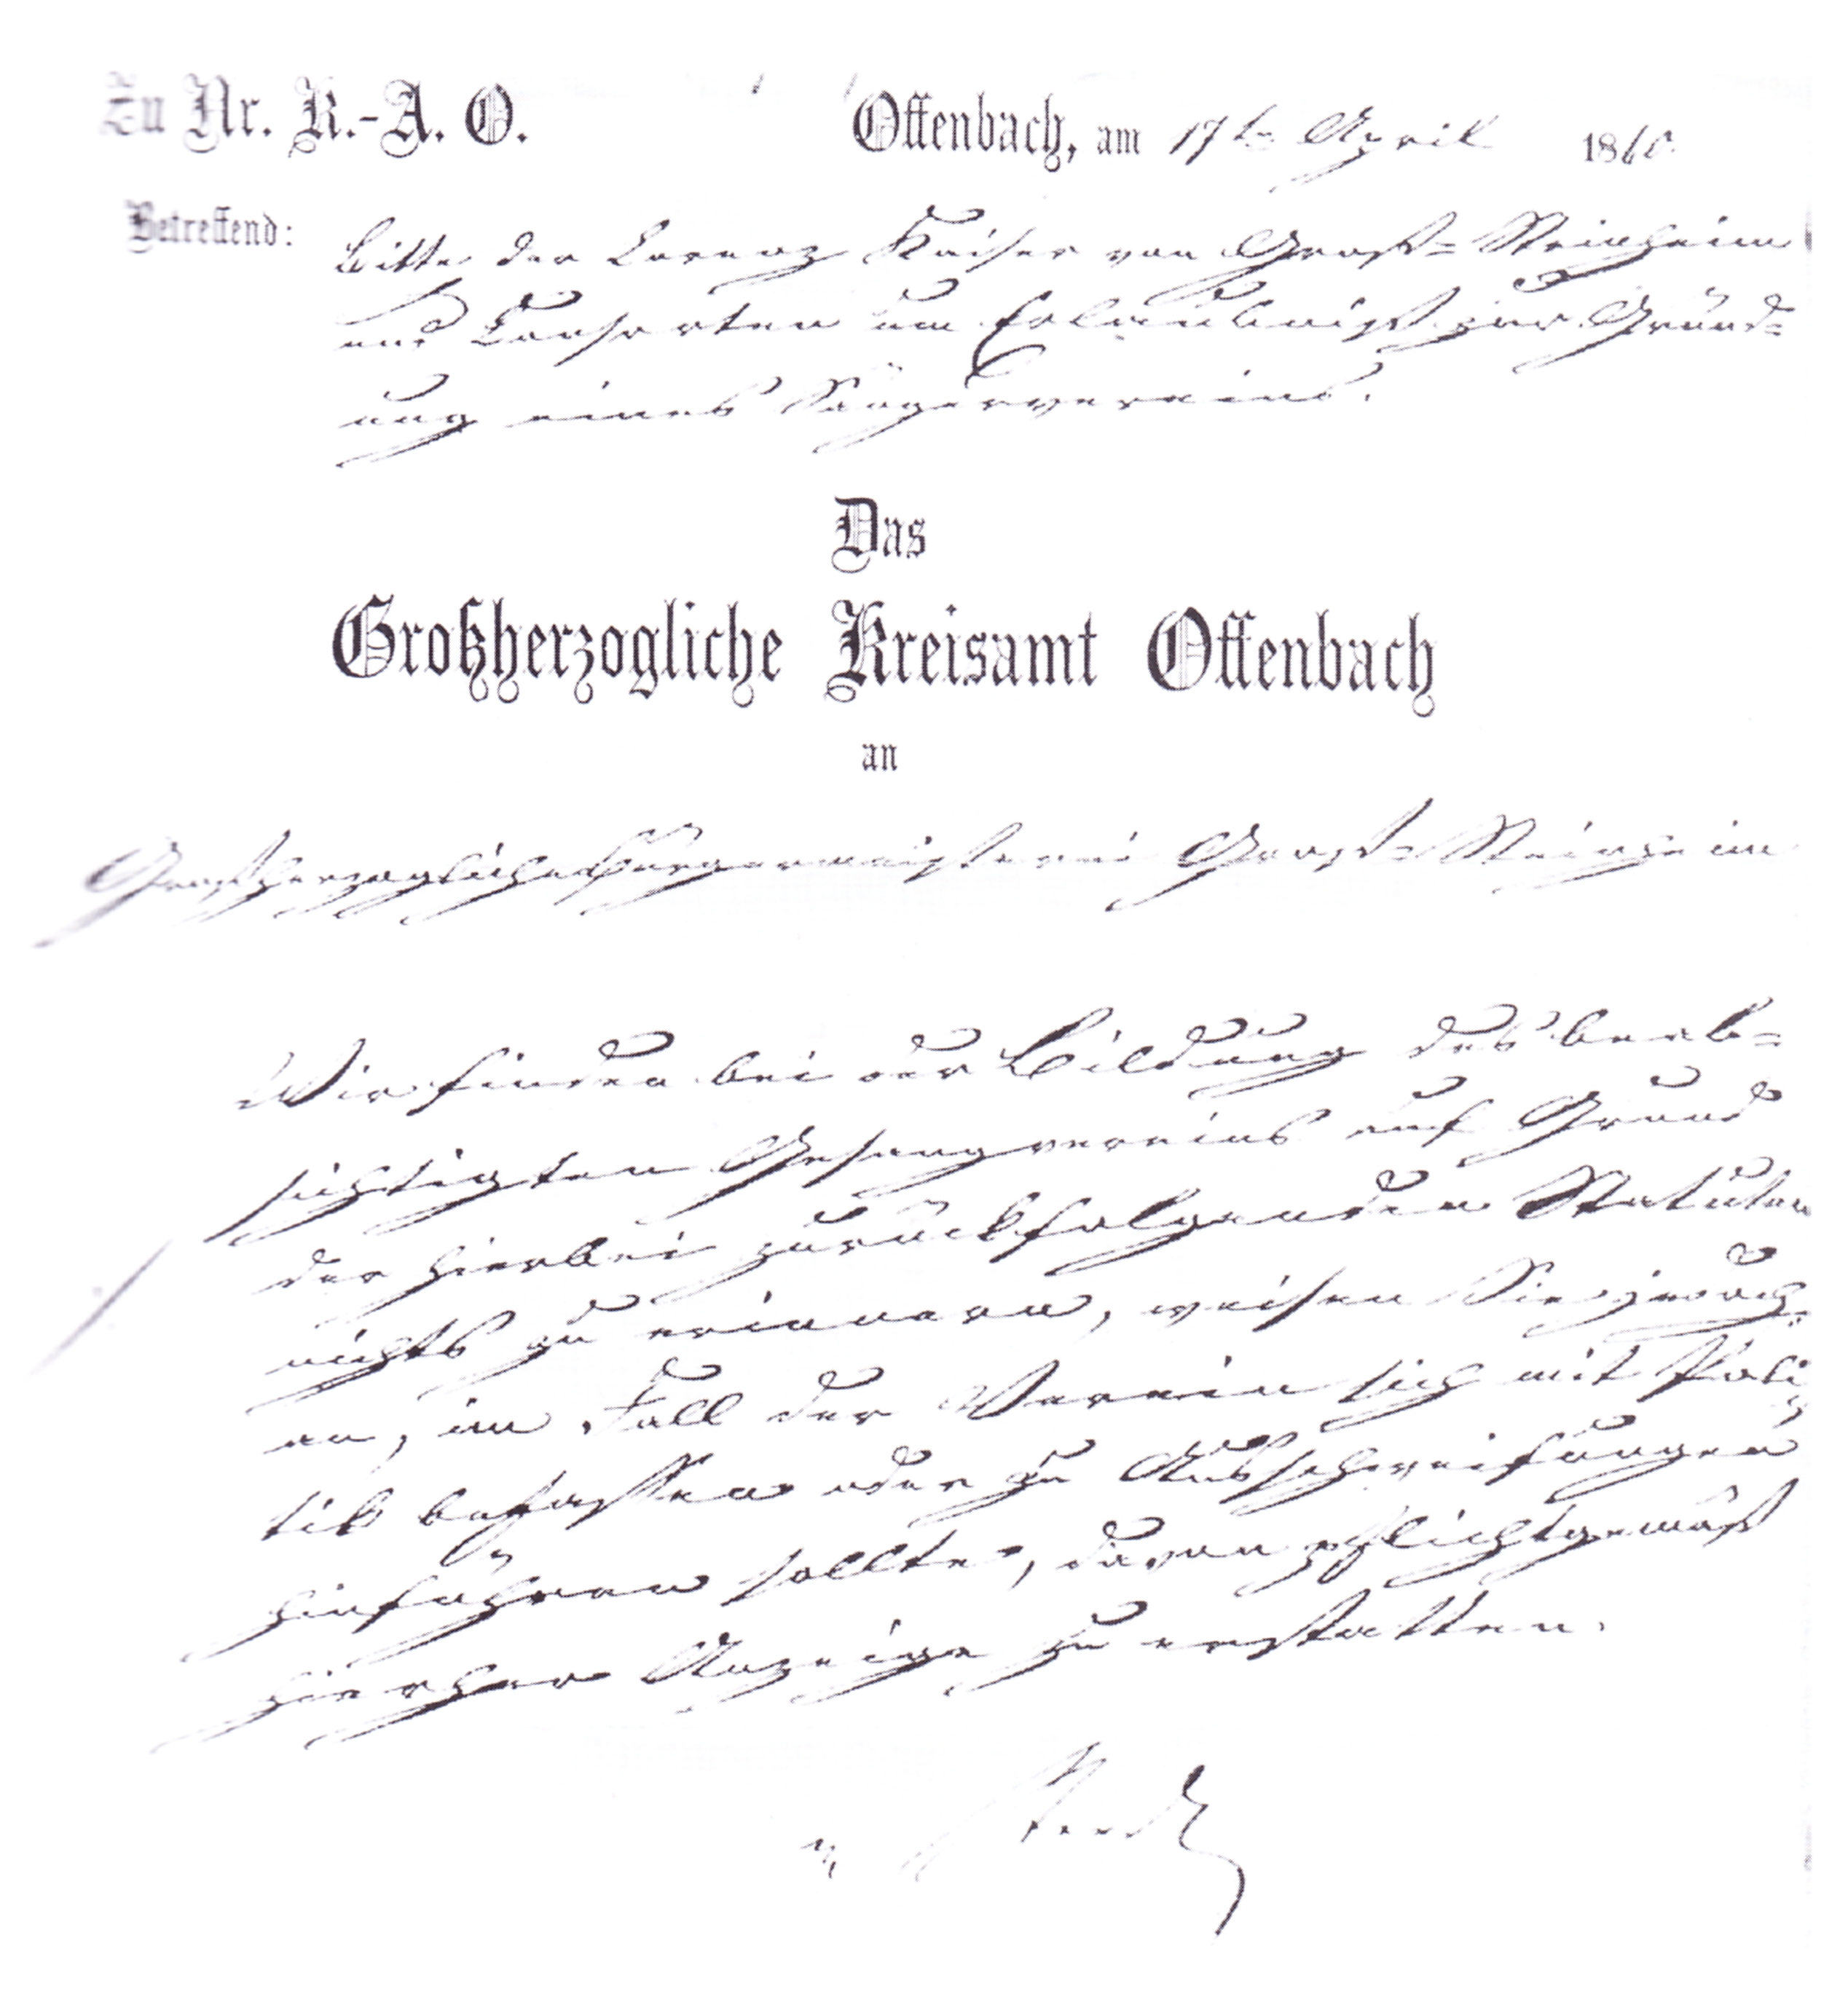 Zu Nr. K.-A. O.
Offenbach, am 17ten April 1860.
Betreffend:
Bitte der Lorenz Kaiser von Groß-Steinheim
und Consorten um Erlaubniß zur Gründ-
ung eines Sängervereins.
Das
Großherzogliche Kreisamt Offenbach
an
Großherzogliche Bürgermeisterei Groß-Steinheim
Wir finden bei der Bildung des beab-
sichtigten Gesangvereins auf Grund
der hierbei zurückfolgenden Statuten
nichts zu erinnern, weisen Sie jedoch
an, im Fall der Verein sich mit Poli-
tik befassen oder zu Ausschweifungen
hinführen sollte, davon pflichtgemäß
hierher Anzeige zu erstatten.